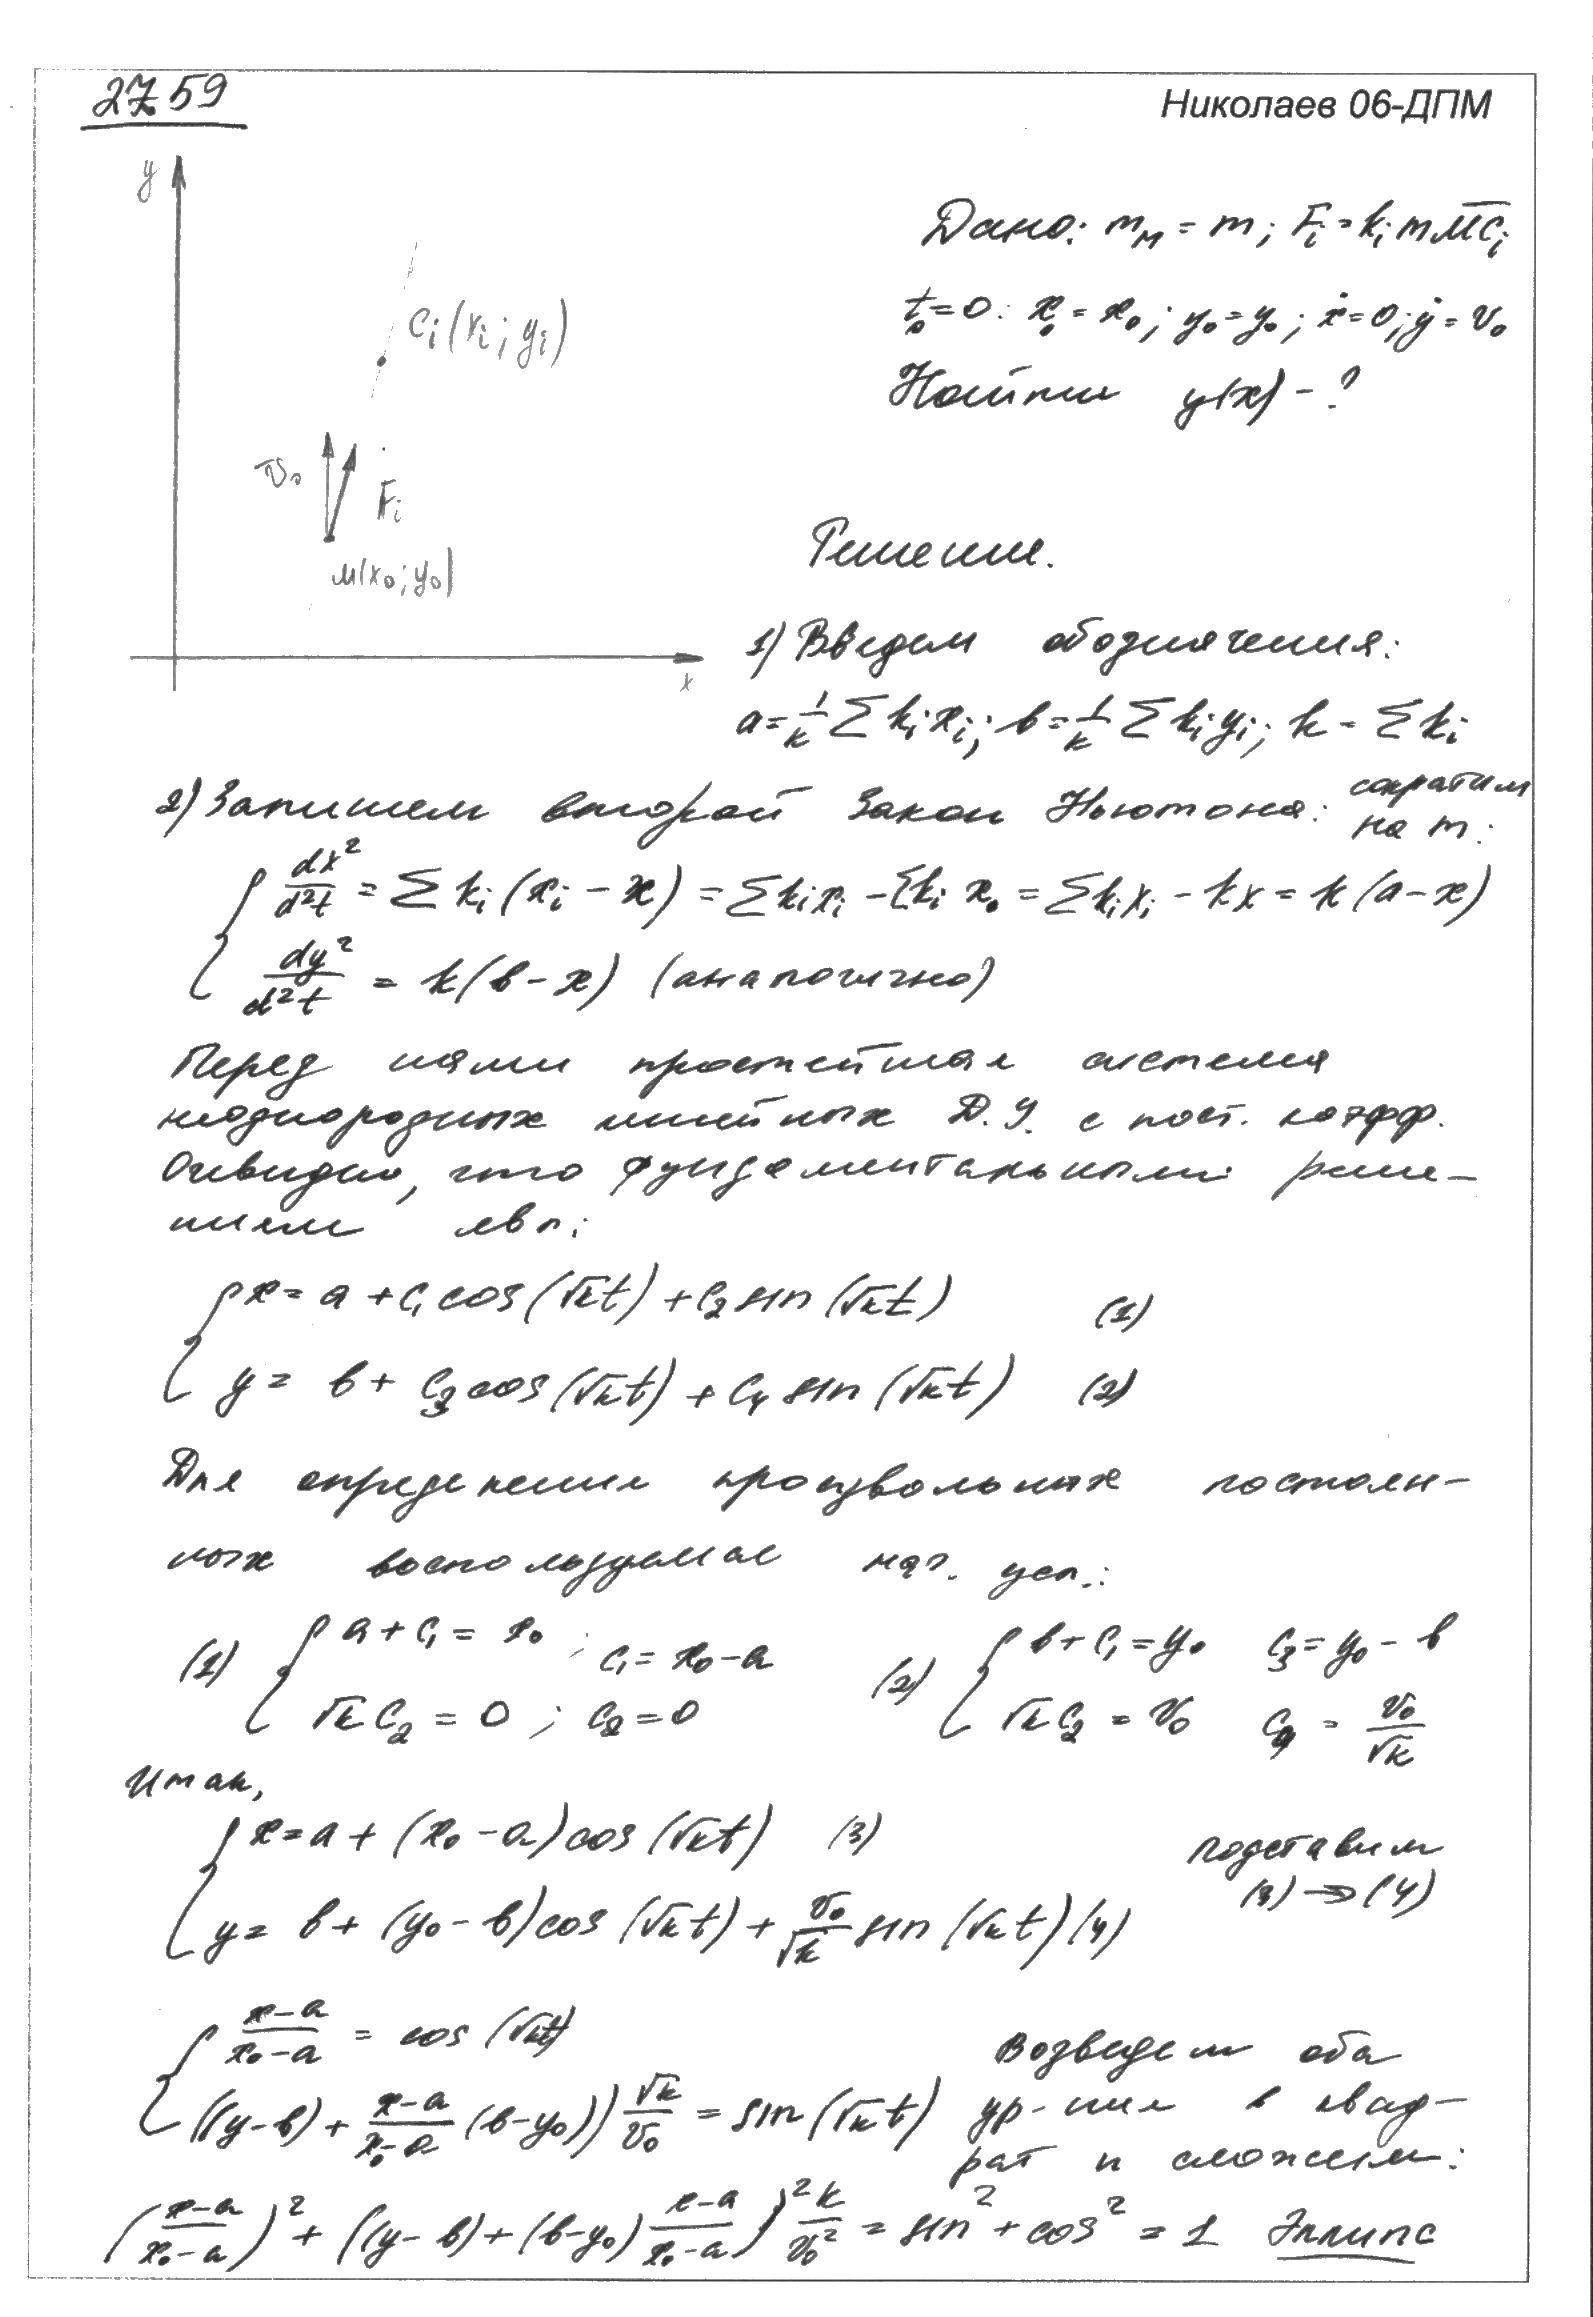 27.59
Николаев 06-ДПМ
y
C_i(x_i; y_i)
v_0
F_i
M(x_0; y_0)
x
Дано: m_M = m; F_i = k_i m \overline{MC_i}
t_0 = 0: x_0 = x_0; y_0 = y_0; ẋ = 0; ẏ = v_0
Найти y(x) - ?
Решение.
1) Введем обозначения:
a = 1/k Σ k_i x_i; b = 1/k Σ k_i y_i; k = Σ k_i
2) Запишем второй закон Ньютона: сократим на m:
dx²/d²t = Σ k_i (x_i - x) = Σ k_i x_i - Σ k_i x_0 = Σ k_i x_i - kx = k(a - x)
dy²/d²t = k(b - x) (аналогично)
Перед нами простейшая система
неоднородных линейных Д.У. с пост. коэфф.
Очевидно, что фундаментальными реше-
ниями явл:
x = a + C_1 cos(√k t) + C_2 sin(√k t) (1)
y = b + C_3 cos(√k t) + C_4 sin(√k t) (2)
Для определения произвольных постоян-
ных воспользуемся нач. усл.:
(1) a + C_1 = x_0; C_1 = x_0 - a
√k C_2 = 0; C_2 = 0
(2) b + C_1 = y_0 C_3 = y_0 - b
√k C_2 = v_0 C_4 = v_0/√k
Итак,
x = a + (x_0 - a) cos(√k t) (3)
y = b + (y_0 - b) cos(√k t) + v_0/√k sin(√k t) (4)
подставим
(3) → (4)
(x - a)/(x_0 - a) = cos(√k t)
((y - b) + (x - a)/(x_0 - a) (b - y_0)) √k/v_0 = sin(√k t)
Возведем оба
ур-ния в квад-
рат и сложим:
((x - a)/(x_0 - a))² + ((y - b) + (b - y_0) (x - a)/(x_0 - a))² k/v_0² = sin² + cos² = 1 Эллипс